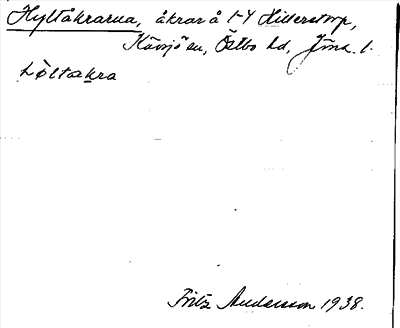 Hyltåkrarna, åkrar å 1-4 Hillerstorp,
Kävsjö sn, Östbo hd, Jönk. l.
hòltakra
Fritz Andersson 1938.